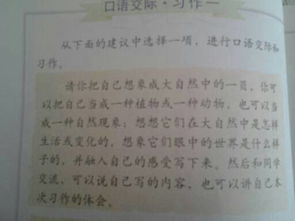 口语交际·习作一
从下面的建议中选择一项，进行口语交际和
习作。
请你把自己想象成大自然中的一员，你可
以把自己当成一种植物或一种动物，也可以当
成一种自然现象；想想它们在大自然中是怎样
生活或变化的，想象它们眼中的世界是什么样
子的，并融入自己的感受写下来。然后和同学
交流，可以说自己写的内容，也可以讲自己本
次习作的体会。